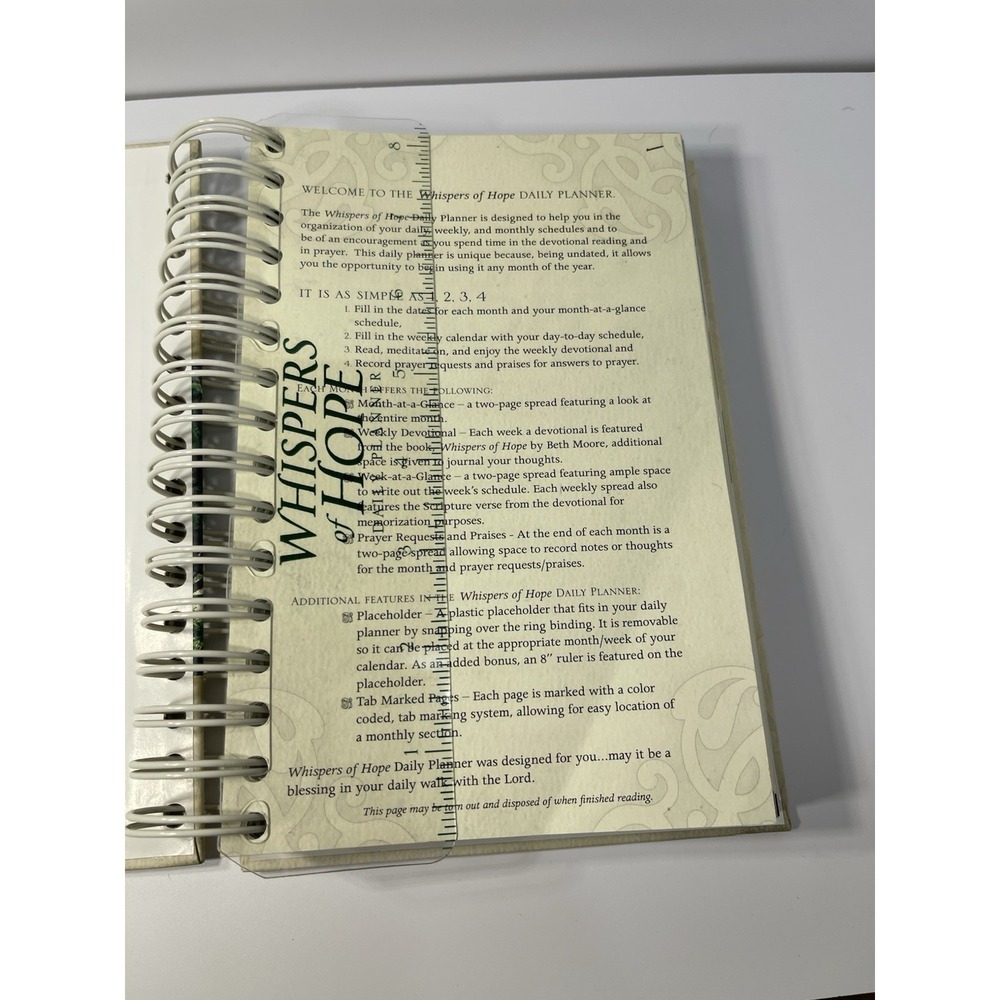 WELCOME TO THE Whispers of Hope DAILY PLANNER.
The Whispers of Hope Daily Planner is designed to help you in the
organization of your daily, weekly, and monthly schedules and to
be of an encouragement as you spend time in the devotional reading and
in prayer. This daily planner is unique because, being undated, it allows
you the opportunity to begin using it any month of the year.
IT IS AS SIMPLE AS 1, 2, 3, 4
1. Fill in the dates for each month and your month-at-a-glance
schedule,
2. Fill in the weekly calendar with your day-to-day schedule,
3. Read, meditate on, and enjoy the weekly devotional and
4. Record prayer requests and praises for answers to prayer.
EACH MONTH OFFERS THE FOLLOWING:
Month-at-a-Glance – a two-page spread featuring a look at
the entire month.
Weekly Devotional – Each week a devotional is featured
from the book, Whispers of Hope by Beth Moore, additional
space is given to journal your thoughts.
Week-at-a-Glance – a two-page spread featuring ample space
to write out the week's schedule. Each weekly spread also
features the Scripture verse from the devotional for
memorization purposes.
Prayer Requests and Praises - At the end of each month is a
two-page spread allowing space to record notes or thoughts
for the month and prayer requests/praises.
ADDITIONAL FEATURES IN THE Whispers of Hope DAILY PLANNER:
Placeholder – A plastic placeholder that fits in your daily
planner by snapping over the ring binding. It is removable
so it can be placed at the appropriate month/week of your
calendar. As an added bonus, an 8" ruler is featured on the
placeholder.
Tab Marked Pages – Each page is marked with a color
coded, tab marking system, allowing for easy location of
a monthly section.
Whispers of Hope Daily Planner was designed for you...may it be a
blessing in your daily walk with the Lord.
This page may be torn out and disposed of when finished reading.
WHISPERS
of HOPE
DAILY PLANNER
1 2 3 4 5 6 7 8